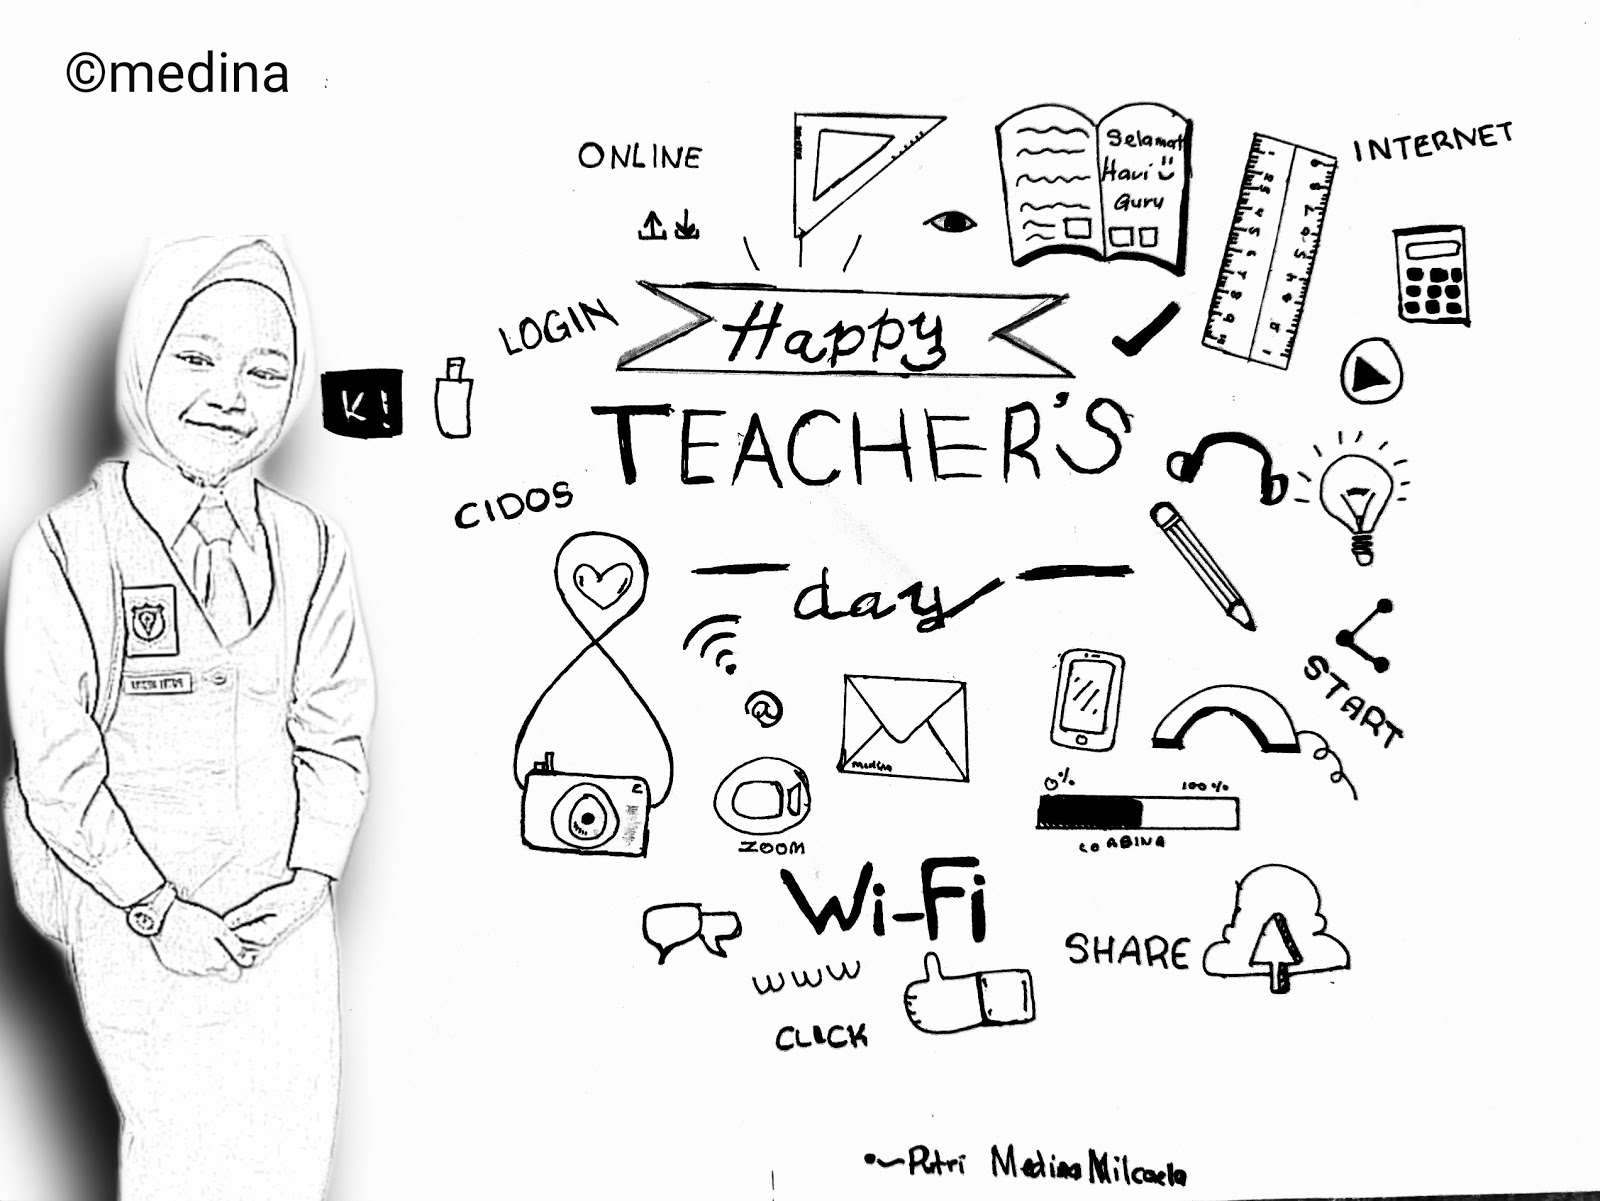 ©medina
ONLINE
Selamat
Hari
Guru
INTERNET
LOGIN
Happy
K!
TEACHER'S
CIDOS
day
START
@
medina
0%
100%
ZOOM
Wi-Fi
SHARE
WWW
CLICK
Putri Medina Milcaela